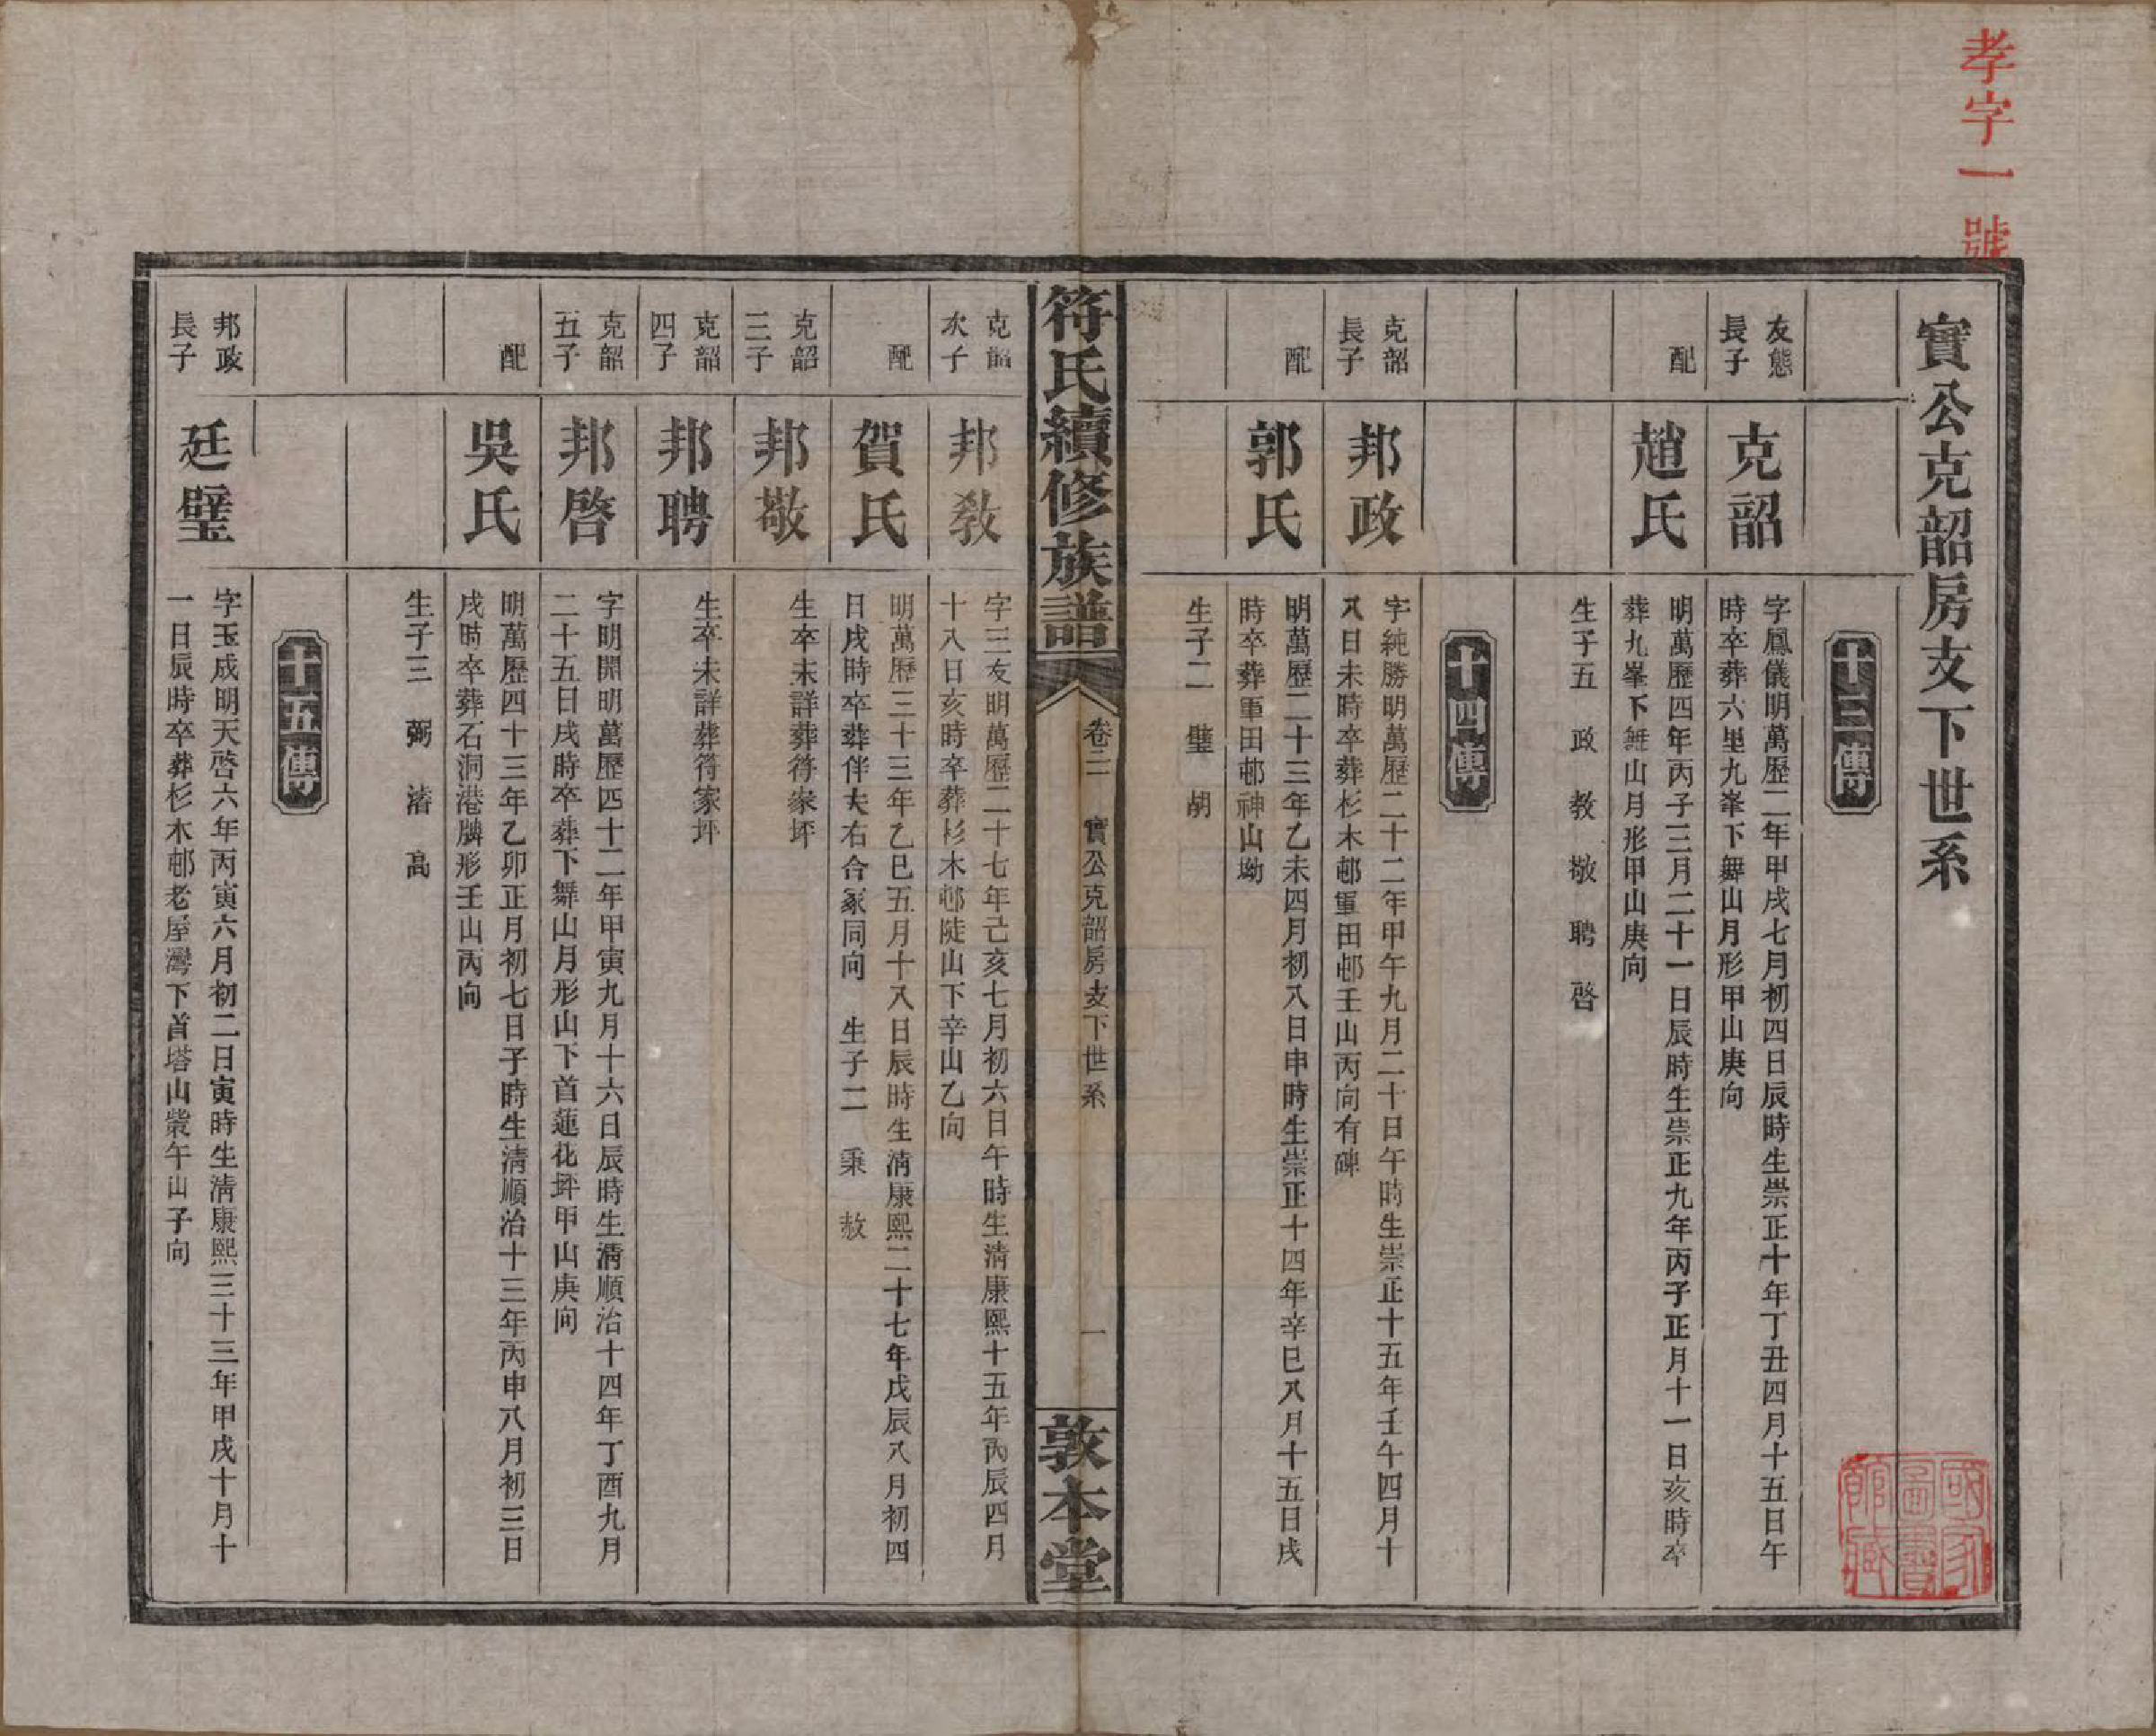 孝字一號
寶公克韶房支下世系
十三傳
友態
長子
克韶
字鳳儀明萬歷二年甲戌七月初四日辰時生崇正十年丁丑四月十五日午
時卒葬六里九峯下舞山月形甲山庚向
配
趙氏
明萬歷四年丙子三月二十一日辰時生崇正九年丙子正月十一日亥時卒
葬九峯下舞山月形甲山庚向
生子五 政 教 敬 聘 啓
十四傳
克韶
長子
邦政
字純勝明萬歷二十二年甲午九月二十日午時生崇正十五年壬午四月十
八日未時卒葬杉木邨軍田邨壬山丙向有碑
配
郭氏
明萬歷二十三年乙未四月初八日申時生崇正十四年辛巳八月十五日戌
時卒葬軍田邨神山坳
生子二 璧 胡
符氏續修族譜
卷二 寶公克韶房支下世系
一
敦本堂
克韶
次子
邦教
字三友明萬歷二十七年己亥七月初六日午時生清康熙十五年丙辰四月
十八日亥時卒葬杉木邨陡山下辛山乙向
配
賀氏
明萬歷三十三年乙巳五月十八日辰時生清康熙二十七年戊辰八月初四
日戌時卒葬伴夫右合冢同向 生子二 秉 赦
克韶
三子
邦敬
生卒未詳葬符家坪
克韶
四子
邦聘
生卒未詳葬符家坪
克韶
五子
邦啓
字明開明萬歷四十二年甲寅九月十六日辰時生清順治十四年丁酉九月
二十五日戌時卒葬下舞山月形山下首蓮花坪甲山庚向
配
吳氏
明萬歷四十三年乙卯正月初七日子時生清順治十三年丙申八月初三日
戌時卒葬石洞港形壬山丙向
生子三 弼 濬 高
十五傳
邦政
長子
廷璧
字玉成明天啓六年丙寅六月初二日寅時生清康熙三十三年甲戌十月十
一日辰時卒葬杉木邨老屋灣下首塔山裳午山子向
國家圖書館藏